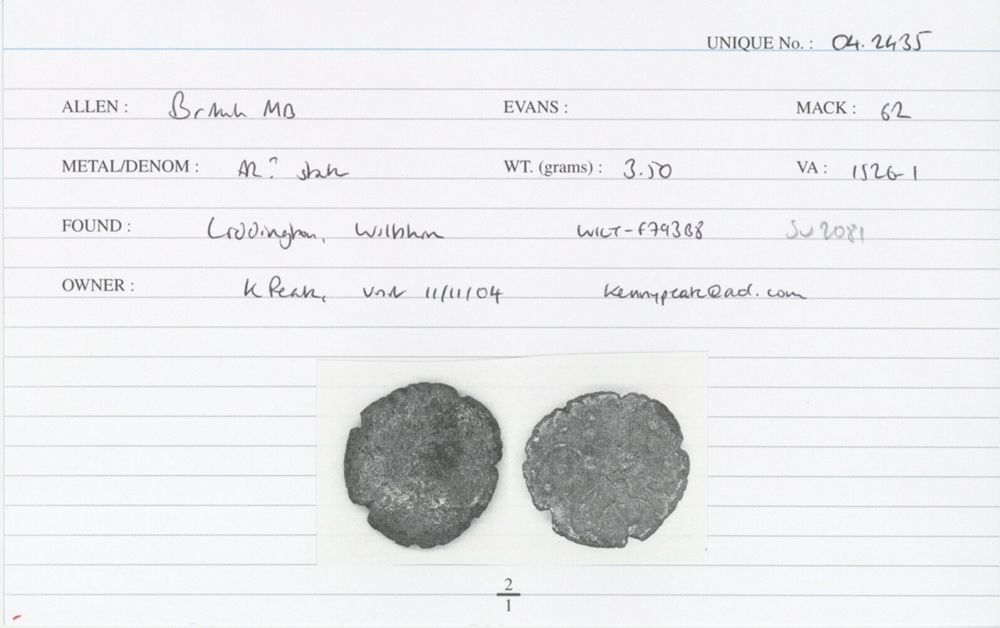 UNIQUE No. : 04.2435
ALLEN : British MB EVANS : MACK : 62
METAL/DENOM : AR? WT. (grams) : 3.50 VA : 1526-1
FOUND : Liddington, Wiltshire WILT-F793B8 SU 2081
OWNER : K Peak, visit 11/11/04
2
1